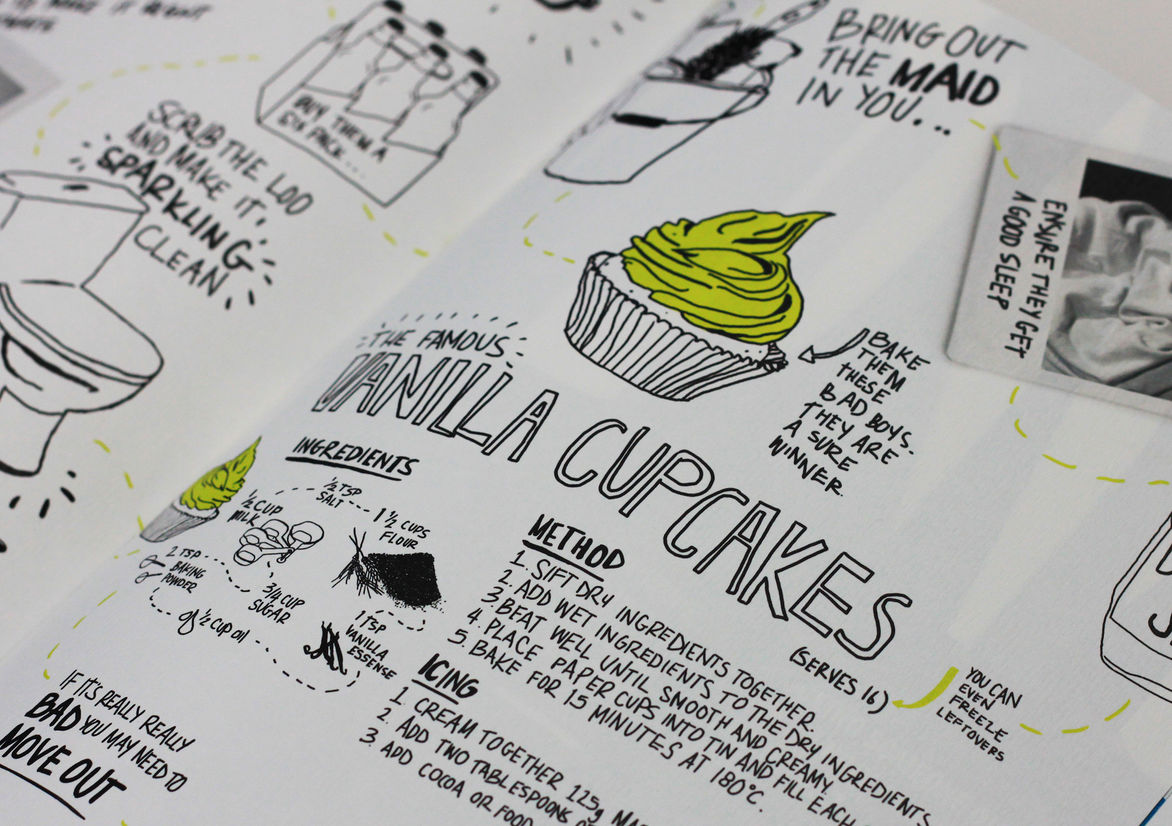 MAKE IT
BUY THEM A
SIX PACK...
SCRUB THE LOO
AND MAKE IT,
SPARKLING
CLEAN
BRING OUT
THE MAID
IN YOU...
ENSURE THEY GET
A GOOD SLEEP
BAKE
THEM
THESE
BAD BOYS.
THEY ARE
A SURE
WINNER.
THE FAMOUS
VANILLA CUPCAKES
(SERVES 16)
YOU CAN
EVEN
FREEZE
LEFTOVERS
INGREDIENTS
1/2 TSP
SALT
1 1/2 CUPS
FLOUR
1/2 CUP
MILK
2 TSP
BAKING
POWDER
3/4 CUP
SUGAR
1/2 CUP OIL
1 TSP
VANILLA
ESSENSE
METHOD
1. SIFT DRY INGREDIENTS TOGETHER
2. ADD WET INGREDIENTS TO THE DRY INGREDIENTS
3. BEAT WELL UNTIL SMOOTH AND CREAMY
4. PLACE PAPER CUPS INTO TIN AND FILL EACH
5. BAKE FOR 15 MINUTES AT 180°C.
ICING
1. CREAM TOGETHER 125g
2. ADD TWO TABLESPOONS
3. ADD COCOA OR FOOD
IF IT'S REALLY REALLY
BAD YOU MAY NEED TO
MOVE OUT